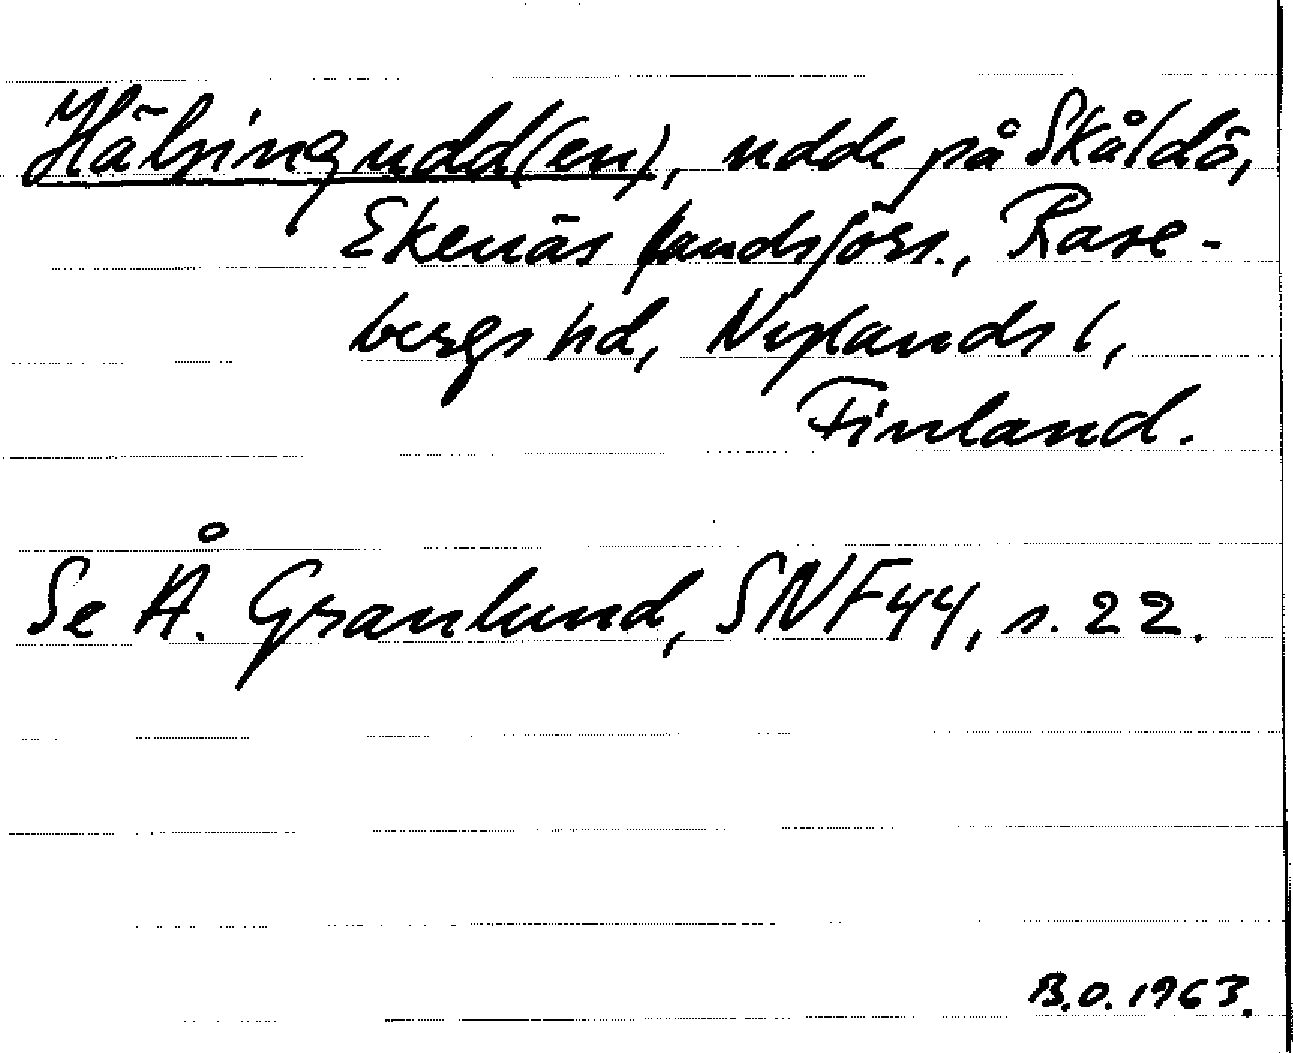 Hälsingudd(en), udde på Skåldö,
Ekenäs landsförs., Rase-
bergs hd, Nylands l,
Finland.
Se Å. Granlund, SNF 44, s. 22.
B.O. 1963.